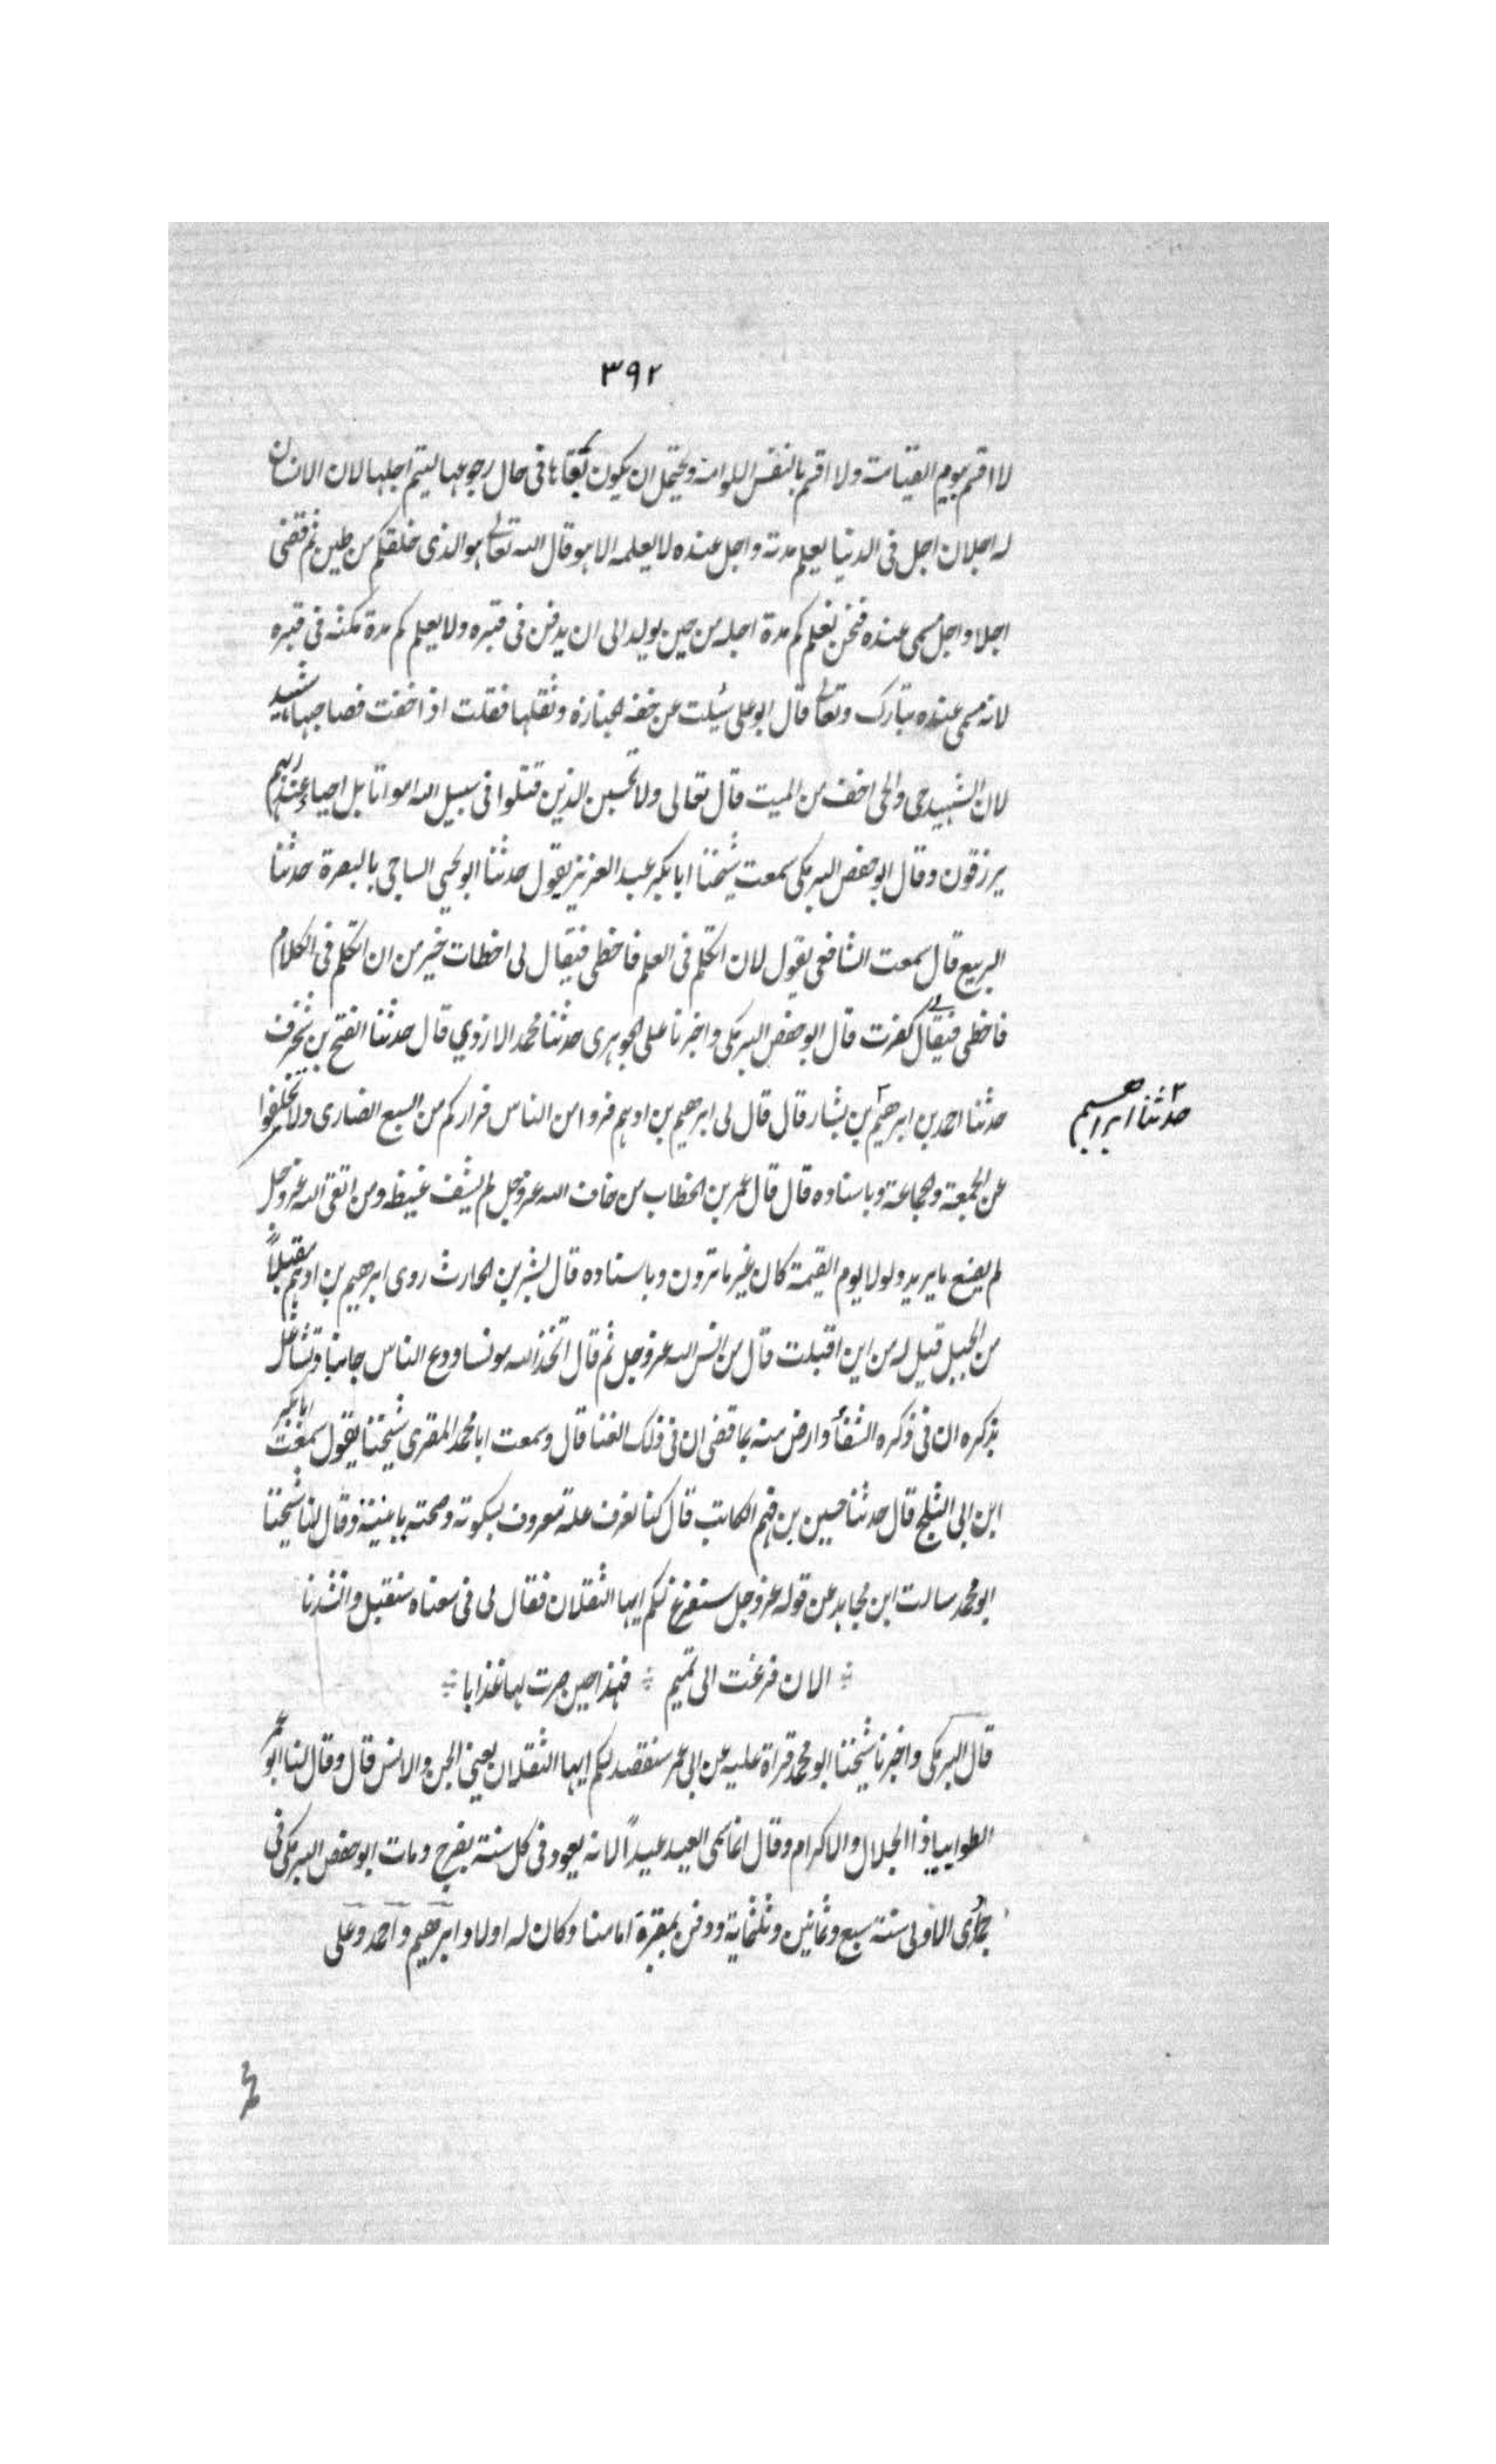 ٣٩٢
لا اقسم بيوم القيامت ولا اقسم بالنفس اللوامة ويحتمل ان يكون بقاها فى حال رجوعها ليتم اجلها لان الانسان
له اجلان اجل فى الدنيا يعلم مدته واجل عنده لا يعلمه الا هو قال الله تعالى هو الذى خلقكم من طين ثم قضى
اجلا واجل مسمى عنده فنحن نعلم كم مدة اجله من حين يولد الى ان يدفن فى قبره ولا يعلم كم مدة مكثه فى قبره
لانه مسمى عنده تبارك وتعالى قال ابو على سئلت عن خفة الجنازة وثقلها فقلت اذا خفت فصاحبها شهيد
لان الشهيد حى والحى اخف من الميت قال تعالى ولا تحسبن الذين قتلوا فى سبيل الله امواتا بل احياء عند ربهم
يرزقون وقال ابو حفص البرمكى سمعت شيخنا ابا بكر عبد العزيز يقول حدثنا ابو يحيى الساجى بالبصرة حدثنا
الربيع قال سمعت الشافعى يقول لان اتكلم فى العلم فاخطى فيقال لى اخطات خير من ان اتكلم فى الكلام
فاخطى فيقال لى كفرت قال ابو حفص البرمكى واخبرنا على الجوهرى حدثنا محمد الازدي قال حدثنا الفتح بن شخرف
حدثنا احمد بن ابرهيم بن بشار قال قال لى ابرهيم بن ادهم فروا من الناس فراركم من السبع الضارى ولا تخلفوا
حدثنا ابراهيم
عن الجمعة والجماعة وباسناده قال قال عمر بن الخطاب من خاف الله عز وجل لم يشف غيظه ومن اتقى الله عز وجل
لم يصنع ما يريد ولولا يوم القيمة كان غير ما ترون وباسناده قال بشر بن الحارث روى ابرهيم بن ادهم مقبلاً
من الجبل قيل له من اين اقبلت قال من انس الله عز وجل ثم قال اتخذ الله مونسا ودع الناس جانبا وتشاغل
بذكره ان فى ذكره الشفأ وارض منه بما قضى ان فى ذلك الغنا قال وسمعت ابا محمد المقرى شيخنا يقول سمعت ابا بكر
ابن ابى الثلج قال حدثنا حسين بن فهم الكاتب قال كنا نعرف علة معروف بسكوته وصحته بانينه وقال لنا شيخنا
ابو محمد سالت ابن مجاهد عن قوله عز وجل سنفرغ لكم ايها الثقلان فقال لى فى معناه سنقبل وانشدنا
الان فرغت الى تميم فهذا حين صرت لها عذابا
قال البرمكى واخبرنا شيخنا ابو محمد قراة عليه عن ابى عمر سنقصد لكم ايها الثقلان يعنى الجن والانس قال وقال لنا ابو عمر
الظوا بيا ذا الجلال والاكرام وقال انما سمى العيد عيداً لانه يعود فى كل سنة بفرح ومات ابو حفص البرمكى فى
جمادى الاولى سنة سبع وثمانين وثلثماية ودفن بمقبرة امامنا وكان له اولاد ابرهيم واحمد وعلى